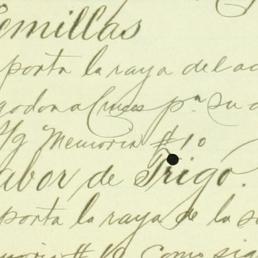 emillas
porta la raya del a
godon a Cruces pa. su a
Memoria #10
abor de Trigo.
porta la raya de la s
como sig